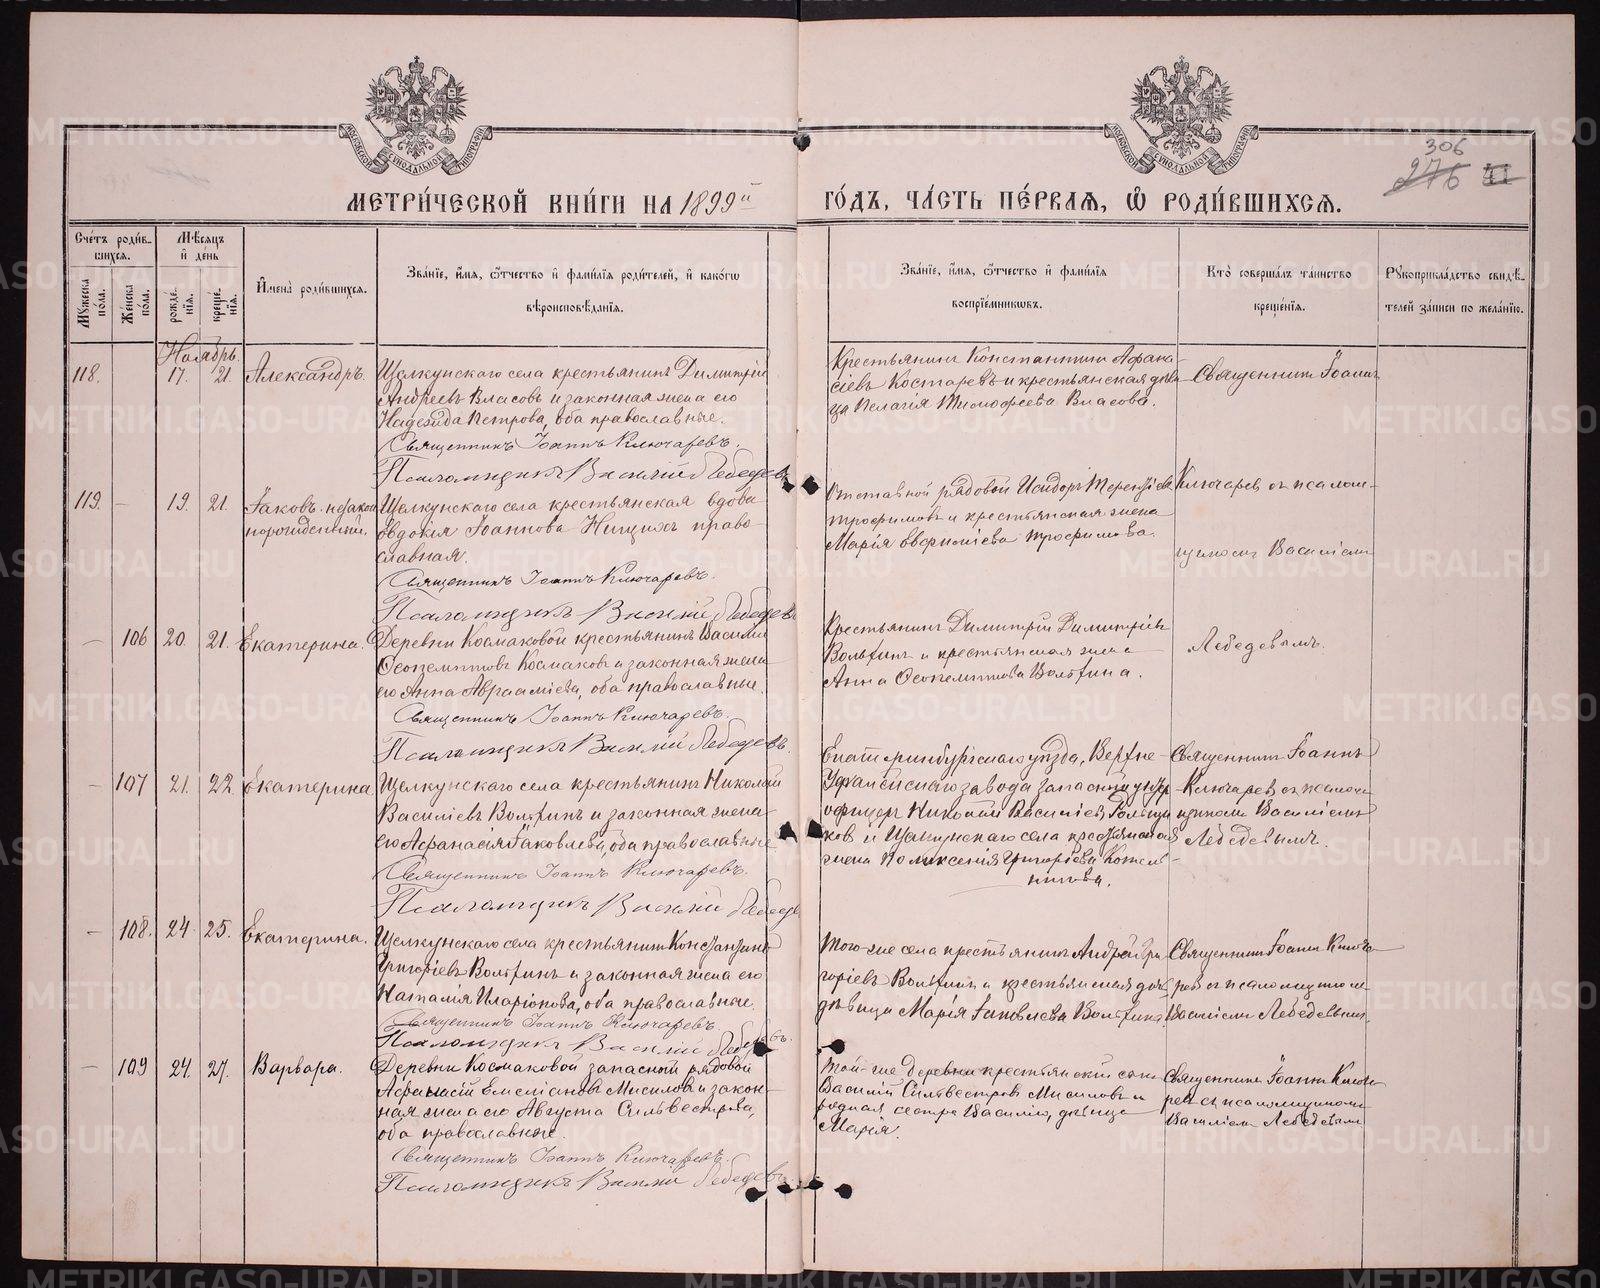 306
276
МЕТРИ́ЧЕСКОЙ КНИ́ГИ НА 1899й ГО́ДЪ, ЧА́СТЬ ПЕ́РВАЯ, Ѡ РОДИ́ВШИХСЯ.
Сче́тъ роди́вшихся.
Му́жеска по́ла.
Же́нска по́ла.
Мѣ́сяцъ и де́нь
рожде́нїя.
креще́нїя.
И҆мена̀ роди́вшихся.
Зва́нїе, и҆́мя, ѻ҆́тчество и҆ фами́лїя роди́телей, и҆ како́гѡ
вѣроисповѣ́данїя.
Зва́нїе, и҆́мя, ѻ҆́тчество и҆ фами́лїя
воспрїе́мниковъ.
Кто̀ соверша́лъ та́инство
креще́нїя.
Рꙋкоприкла́дство свидѣ́-
телей за́писи по жела́нїю.
Ноябрь.
118.
17.
21.
Александръ.
Щелкунскаго села крестьянинъ Димитрій
Андреевъ Власовъ и законная жена его
Надежда Петрова, оба православные.
Священникъ Іоаннъ Ключаревъ.
Псаломщикъ Василій Лебедевъ
Крестьянинъ Константинъ Афана-
сіевъ Костаревъ и крестьянская дѣви-
ца Пелагія Тимофеева Власова.
Священникъ Іоаннъ
119.
19.
21.
Іаковъ. незакон
норожденный.
Щелкунскаго села крестьянская вдова
Евдокія Іоаннова Нищихъ право-
славная.
Священникъ Іоаннъ Ключаревъ.
Псаломщикъ Василій Лебедевъ
Отставной рядовой Исидоръ Терентіевъ
Трофимовъ и крестьянская жена
Марія Трофимова.
Ключаревъ съ псалом-
щикомъ Василіемъ
106
20.
21.
Екатерина.
Деревни Космаковой крестьянинъ Василій
Космаковъ и законная жена
его Анна Авраамiева, оба православные.
Священникъ Іоаннъ Ключаревъ.
Псаломщикъ Василій Лебедевъ.
Крестьянинъ Димитрій Димитріевъ
и крестьянская жена
Анна
Лебедевымъ.
107
21.
22.
Екатерина
Щелкунскаго села крестьянинъ Николай
Василіевъ и законная жена
его Афанасія Іаковлева, оба православные
Священникъ Іоаннъ Ключаревъ.
Псаломщикъ Василій Лебедев
Екатеринбургскаго уѣзда, Верхне-
Уфалейскаго завода запасный унтер
офицеръ Николай Василіевъ Гольщи
ковъ и Щелкунскаго села крестьянская
жена Поликсенія Григоріева Котель-
никова.
Священникъ Іоаннъ
Ключаревъ съ псалом-
щикомъ Василіемъ
Лебедевымъ.
108.
24.
25.
Екатерина.
Щелкунскаго села крестьянинъ Константинъ
Григоріевъ и законная жена его
Наталія Иларіонова, оба православные.
Священникъ Іоаннъ Ключаревъ.
Псаломщикъ Василій Лебедевъ.
Того-же села крестьянинъ Андрей Гри
горіевъ и крестьянская дочь
дѣвица Марія Іаковлева
Священникъ Іоаннъ Ключа-
ревъ съ псаломщикомъ
Василіемъ Лебедевымъ.
109
24.
27.
Варвара.
Деревни Космаковой запасный рядовой
Афанасій Емеліановъ Мисиловъ и закон-
ная жена его Августа Сильвестрова,
оба православные.
Священникъ Іоаннъ Ключаревъ.
Псаломщикъ Василій Лебедевъ
Той-же деревни крестьянскій сынъ
Василій Сильвестровъ Мисиловъ и
родная сестра Василію, дѣвица
Марія.
Священникъ Іоаннъ Ключа
ревъ съ псаломщикомъ
Василіемъ Лебедевымъ
METRIKI.GASO-URAL.RU